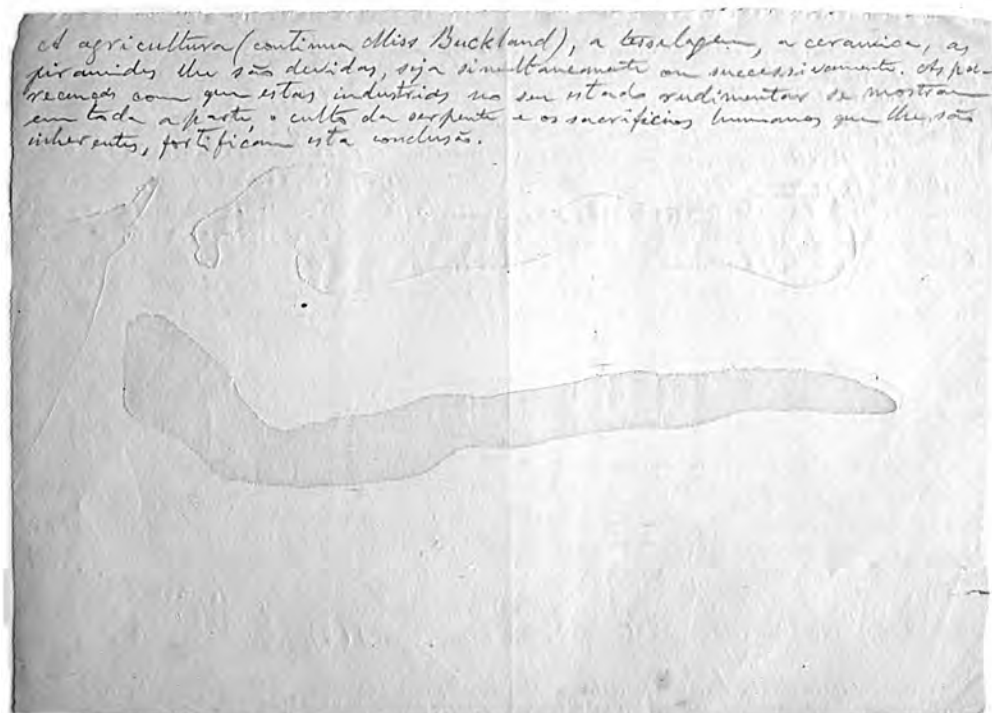 A agricultura (continua Miss Buckland), a tesselagem, a ceramica, as
piramides lhe são devidas, seja simultaneamente ou successivamente. As pa-
recenças com que estas industrias no seu estado rudimentar se mostram
em toda a parte o culto da serpente e os sacrificios humanos que lhe são
inherentes, fortificam esta conclusão.